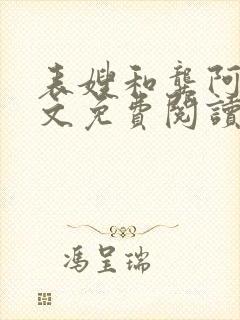 表嫂和龔阿
文免費閱讀
馮呈瑞